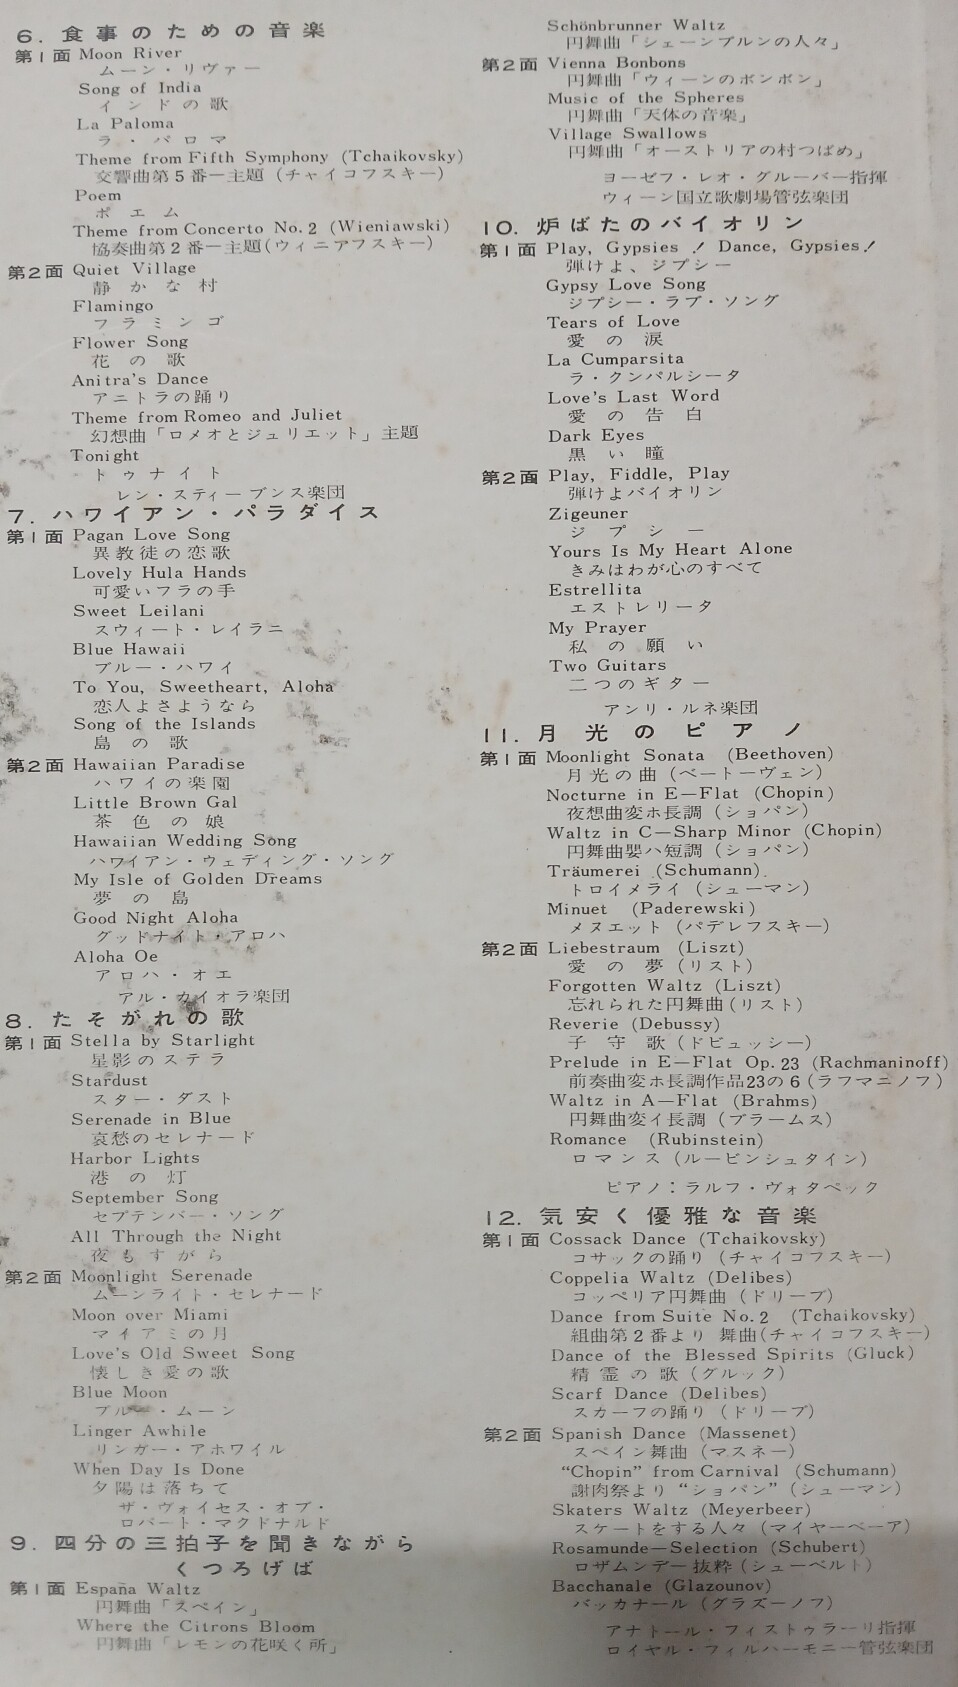 6. 食事のための音楽
第1面 Moon River
ムーン・リヴァー
Song of India
インドの歌
La Paloma
ラ・パロマ
Theme from Fifth Symphony (Tchaikovsky)
交響曲第5番―主題 (チャイコフスキー)
Poem
ポエム
Theme from Concerto No. 2 (Wieniawski)
協奏曲第2番―主題(ウィニアフスキー)
第2面 Quiet Village
静かな村
Flamingo
フラミンゴ
Flower Song
花の歌
Anitra's Dance
アニトラの踊り
Theme from Romeo and Juliet
幻想曲「ロメオとジュリエット」主題
Tonight
トゥナイト
レン・スティーブンス楽団
7. ハワイアン・パラダイス
第1面 Pagan Love Song
異教徒の恋歌
Lovely Hula Hands
可愛いフラの手
Sweet Leilani
スウィート・レイラニ
Blue Hawaii
ブルー・ハワイ
To You, Sweetheart, Aloha
恋人よさようなら
Song of the Islands
島の歌
第2面 Hawaiian Paradise
ハワイの楽園
Little Brown Gal
茶色の娘
Hawaiian Wedding Song
ハワイアン・ウェディング・ソング
My Isle of Golden Dreams
夢の島
Good Night Aloha
グッドナイト・アロハ
Aloha Oe
アロハ・オエ
アル・カイオラ楽団
8. たそがれの歌
第1面 Stella by Starlight
星影のステラ
Stardust
スター・ダスト
Serenade in Blue
哀愁のセレナード
Harbor Lights
港の灯
September Song
セプテンバー・ソング
All Through the Night
夜もすがら
第2面 Moonlight Serenade
ムーンライト・セレナード
Moon over Miami
マイアミの月
Love's Old Sweet Song
懐しき愛の歌
Blue Moon
ブルー・ムーン
Linger Awhile
リンガー・アホワイル
When Day Is Done
夕陽は落ちて
ザ・ヴォイセス・オブ・
ロバート・マクドナルド
9. 四分の三拍子を聞きながら
くつろげば
第1面 España Waltz
円舞曲「スペイン」
Where the Citrons Bloom
円舞曲「レモンの花咲く所」
Schönbrunner Waltz
円舞曲「シェーンブルンの人々」
第2面 Vienna Bonbons
円舞曲「ウィーンのボンボン」
Music of the Spheres
円舞曲「天体の音楽」
Village Swallows
円舞曲「オーストリアの村つばめ」
ヨーゼフ・レオ・グルーバー指揮
ウィーン国立歌劇場管弦楽団
10. 炉ばたのバイオリン
第1面 Play, Gypsies ! Dance, Gypsies!
弾けよ、ジプシー
Gypsy Love Song
ジプシー・ラブ・ソング
Tears of Love
愛の涙
La Cumparsita
ラ・クンパルシータ
Love's Last Word
愛の告白
Dark Eyes
黒い瞳
第2面 Play, Fiddle, Play
弾けよバイオリン
Zigeuner
ジプシー
Yours Is My Heart Alone
きみはわが心のすべて
Estrellita
エストレリータ
My Prayer
私の願い
Two Guitars
二つのギター
アンリ・ルネ楽団
11. 月光のピアノ
第1面 Moonlight Sonata (Beethoven)
月光の曲 (ベートーヴェン)
Nocturne in E―Flat (Chopin)
夜想曲変ホ長調 (ショパン)
Waltz in C―Sharp Minor (Chopin)
円舞曲嬰ハ短調 (ショパン)
Träumerei (Schumann)
トロイメライ (シューマン)
Minuet (Paderewski)
メヌエット (パデレフスキー)
第2面 Liebestraum (Liszt)
愛の夢 (リスト)
Forgotten Waltz (Liszt)
忘れられた円舞曲 (リスト)
Reverie (Debussy)
子守歌 (ドビュッシー)
Prelude in E―Flat Op. 23 (Rachmaninoff)
前奏曲変ホ長調作品23の6 (ラフマニノフ)
Waltz in A―Flat (Brahms)
円舞曲変イ長調 (ブラームス)
Romance (Rubinstein)
ロマンス (ルービンシュタイン)
ピアノ：ラルフ・ヴォタペック
12. 気安く優雅な音楽
第1面 Cossack Dance (Tchaikovsky)
コサックの踊り (チャイコフスキー)
Coppelia Waltz (Delibes)
コッペリア円舞曲 (ドリーブ)
Dance from Suite No. 2 (Tchaikovsky)
組曲第2番より 舞曲(チャイコフスキー)
Dance of the Blessed Spirits (Gluck)
精霊の歌 (グルック)
Scarf Dance (Delibes)
スカーフの踊り (ドリーブ)
第2面 Spanish Dance (Massenet)
スペイン舞曲 (マスネー)
“Chopin” from Carnival (Schumann)
謝肉祭より “ショパン” (シューマン)
Skaters Waltz (Meyerbeer)
スケートをする人々 (マイヤーベーア)
Rosamunde―Selection (Schubert)
ロザムンデ―抜粋 (シューベルト)
Bacchanale (Glazounov)
バッカナール (グラズーノフ)
アナトール・フィストゥラーリ指揮
ロイヤル・フィルハーモニー管弦楽団